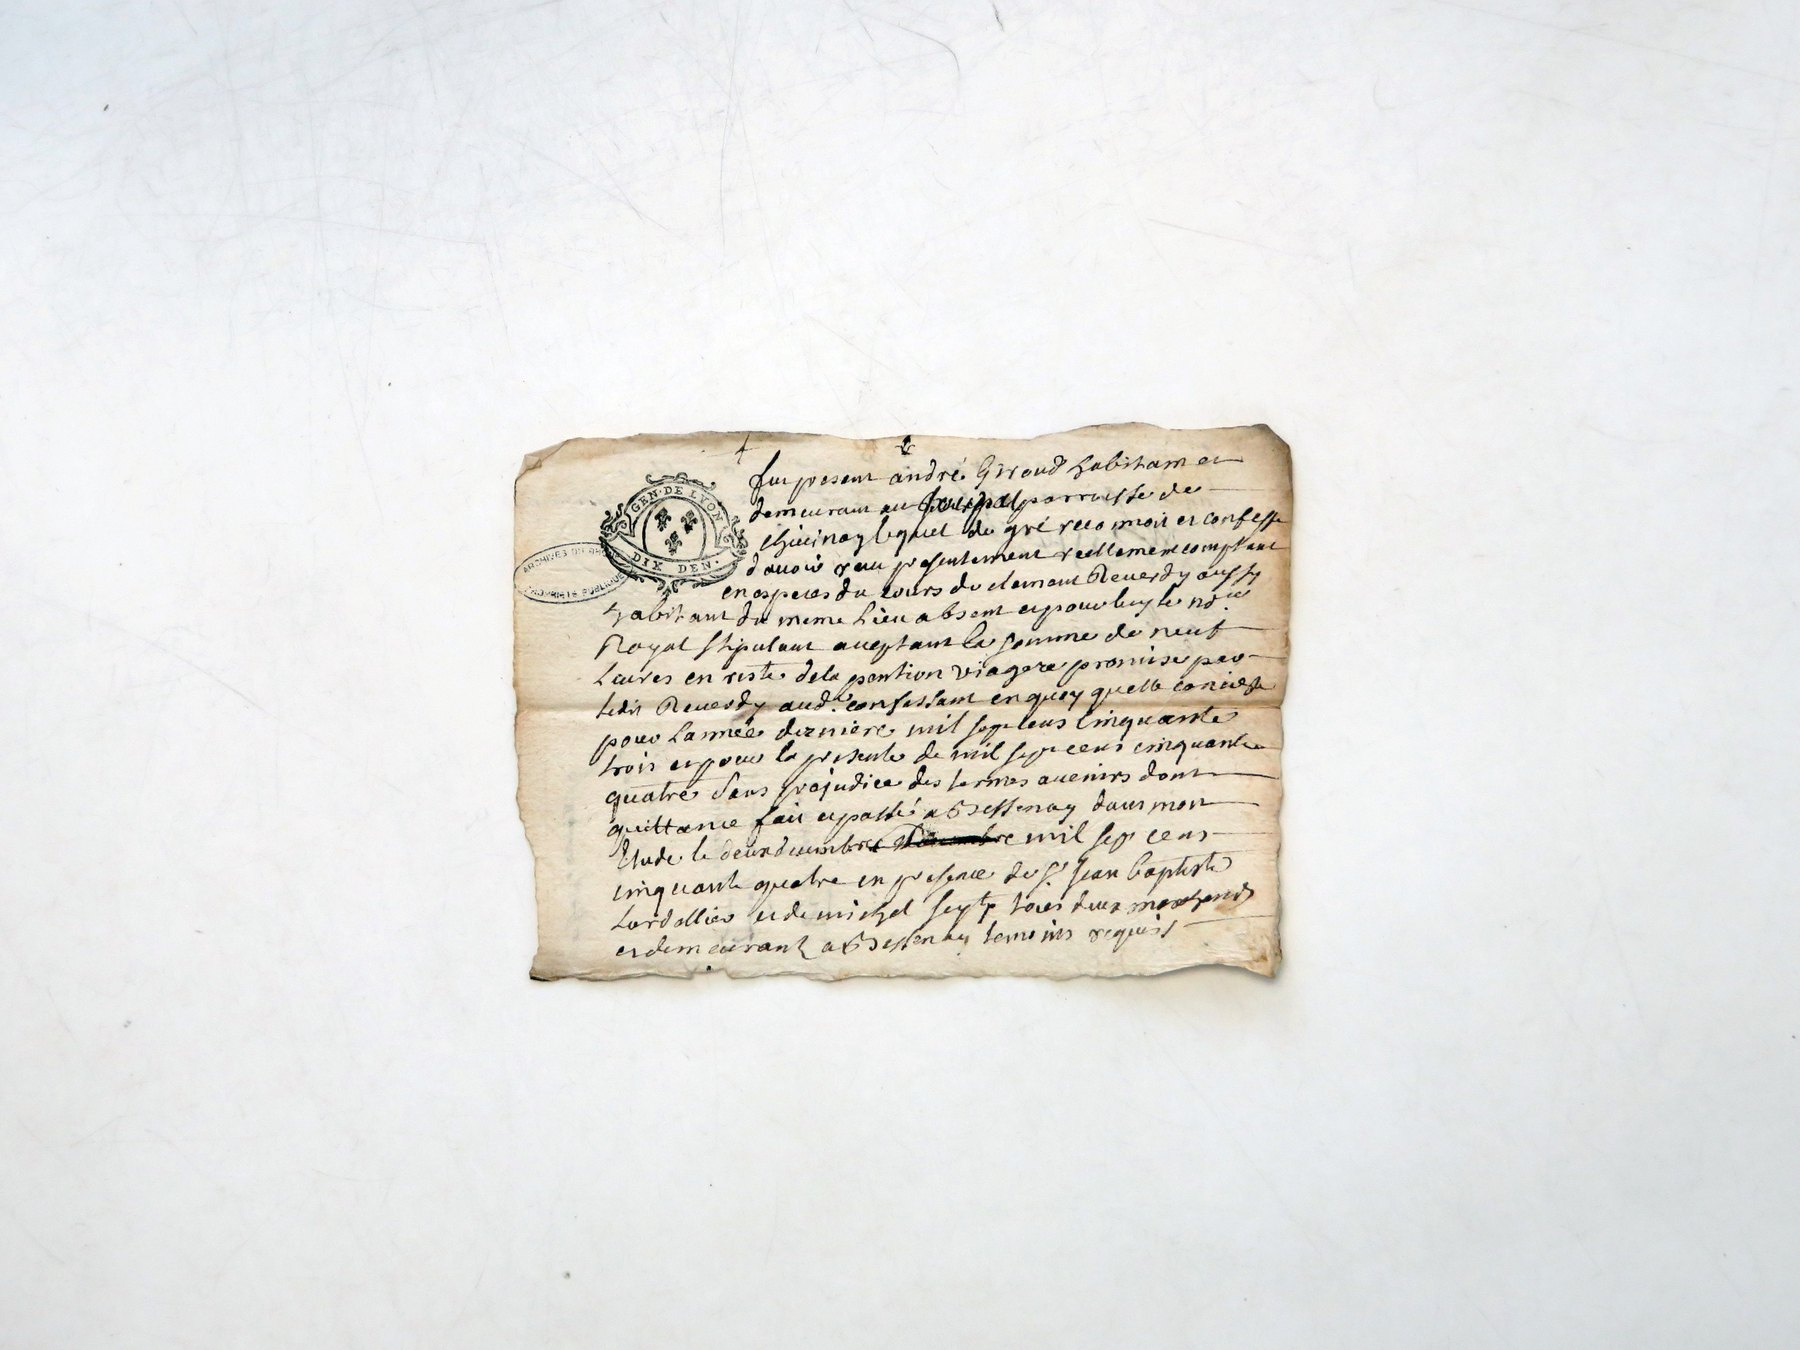 GEN·DE LYON
DIX DEN.
ARCHIVES DU
PROPRIÉTÉ PUBLIQUE
fut present andré Giroud habitant et
demeurant au parroisse de
lequel de gré reconnoit et confesse
d'avoir reçu presentement reellement comptant
en especes du cours de clemant Reverdy aussy
habitant du meme Lieu absent et pour luy le no.re
Royal stipulant acceptant la somme de neuf
Livres en reste de la pention viagere promise par
ledit Reverdy aud.t confessant en quoy quelle consiste
pour Lannée derniere mil sept cens cinquante
trois et pour la presente de mil sept cens cinquante
quatre sans prejudice des termes avenirs dont
quittance fait et passé a Bessenay dans mon
Etude le deux decembre mil sept cens
cinquante quatre en presence de S.r Jean baptiste
et de michel tous deux marchands
et demeurant a Bessenay temoins requis